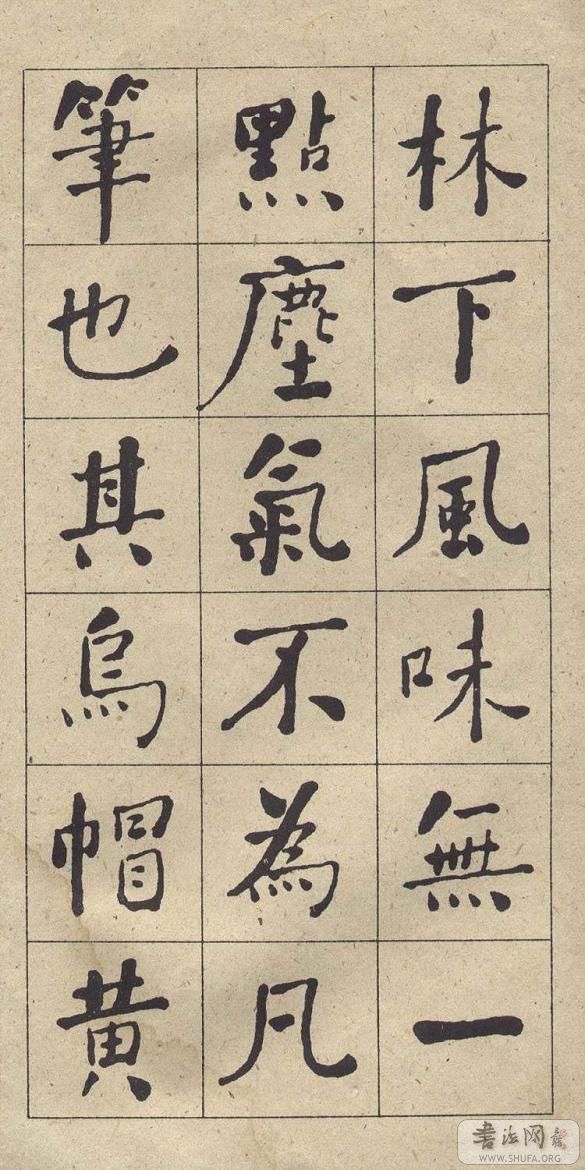 林下風味無一
點塵氣不為凡
筆也其烏帽黄
書法网
WWW.SHUFA.ORG